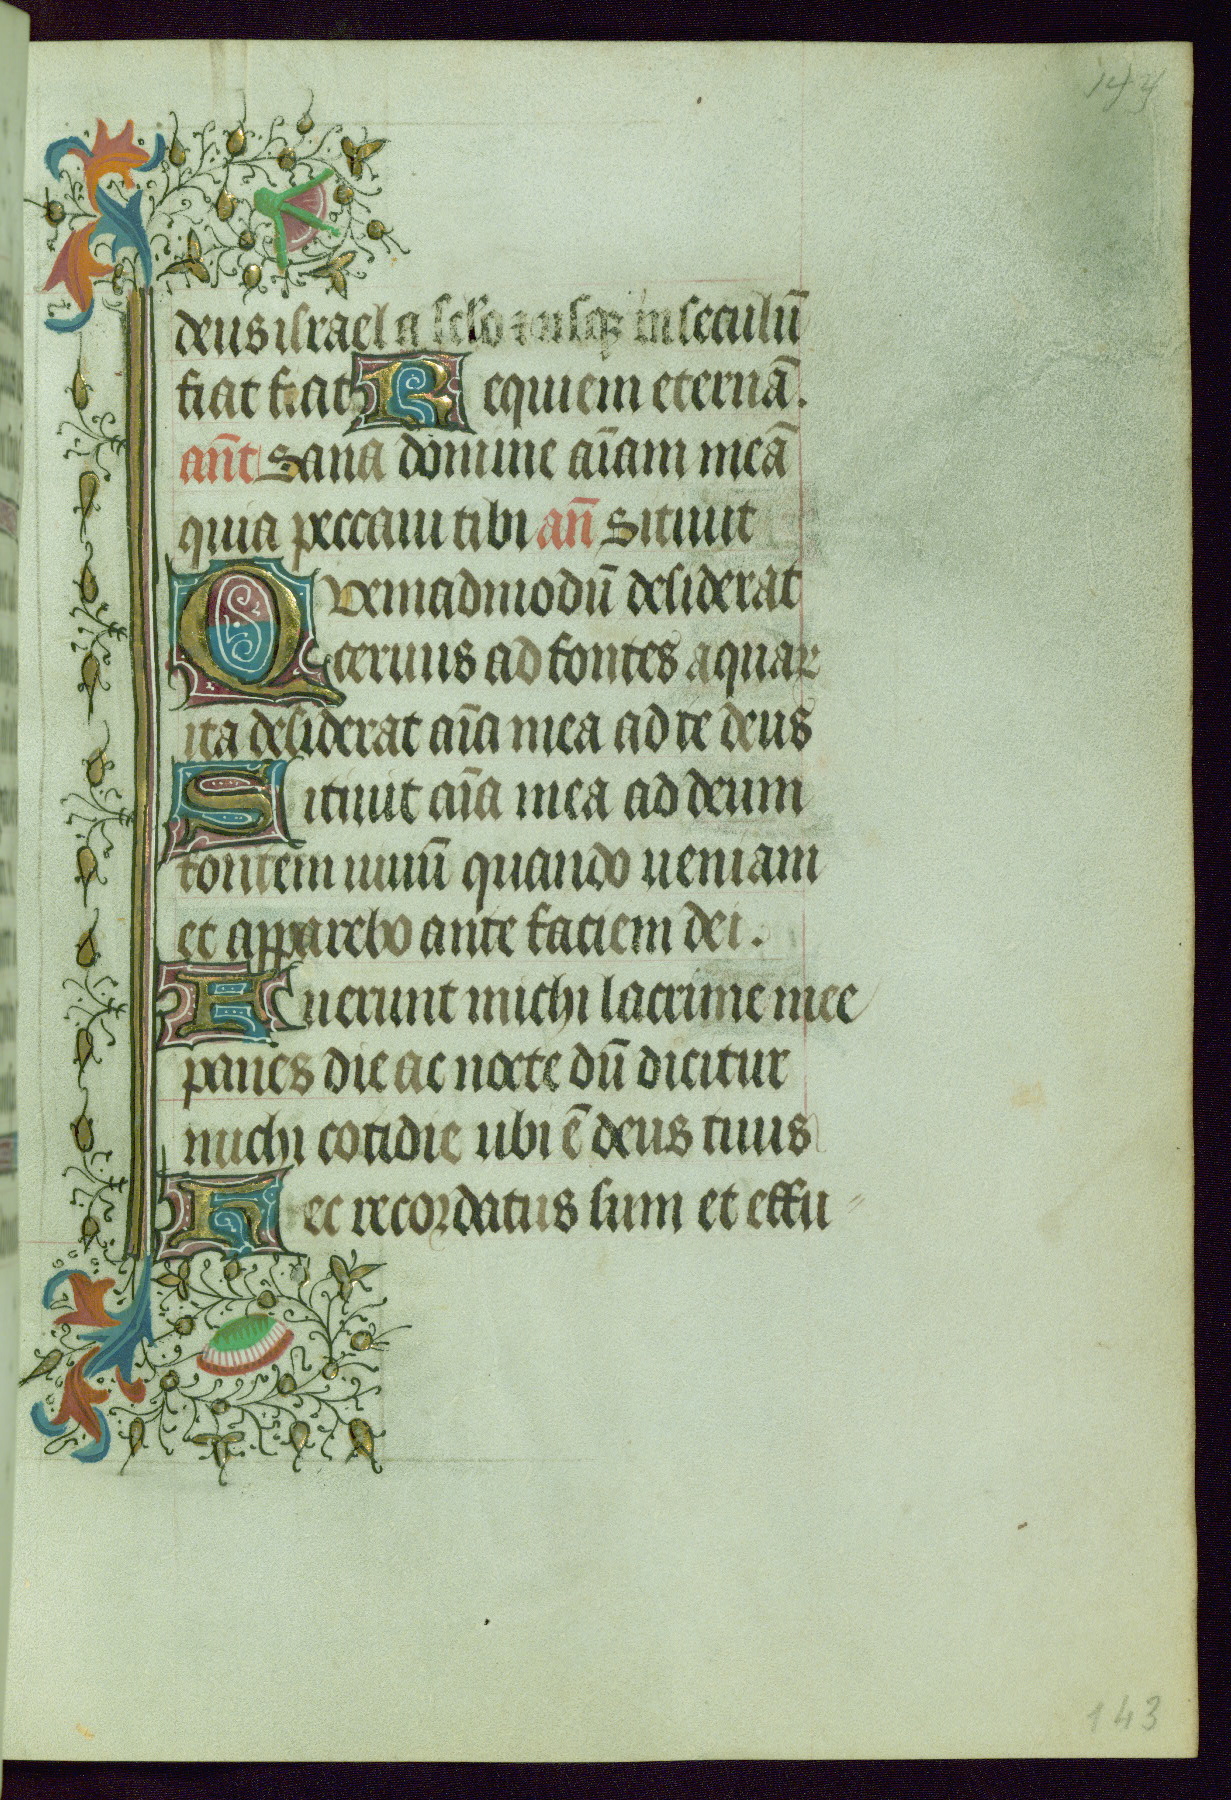 144
deus israel a sclo et usqꝫ in seculū
fiat fiat Requiem eternā.
an̄t Sana domine aīam meā
quia peccaui tibi an̄ Sitiuit
Quemadmodū desiderat
ceruus ad fontes aquaꝝ
ita desiderat aīa mea ad te deus
Sitiuit aīa mea ad deum
fontem uiuū quando ueniam
et apparebo ante faciem dei.
Fuerunt michi lacrime mee
panes die ac nocte dū dicitur
michi cotidie ubi ē deus tuus
Hec recordatus sum et effu
143